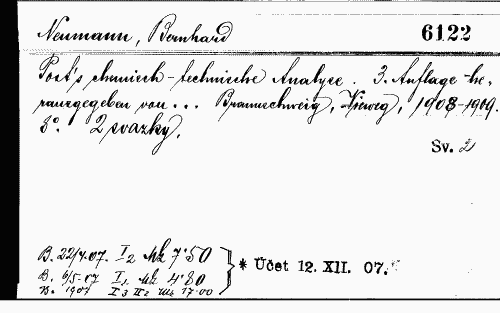 Neumann, Bernhard 6122
Post's chemisch-technische Analyse. 3. Auflage he-
rausgegeben von ... Braunschweig, Vieweg, 1908-1909.
8°. 2 svazky.
Sv. 2
B. 22/4.07. I2 Mk 7·50
B. 6/5-07 I1 Mk 4·80
B. 1907 I3 II2 Mk 17·00
* Účet 12. XII. 07.